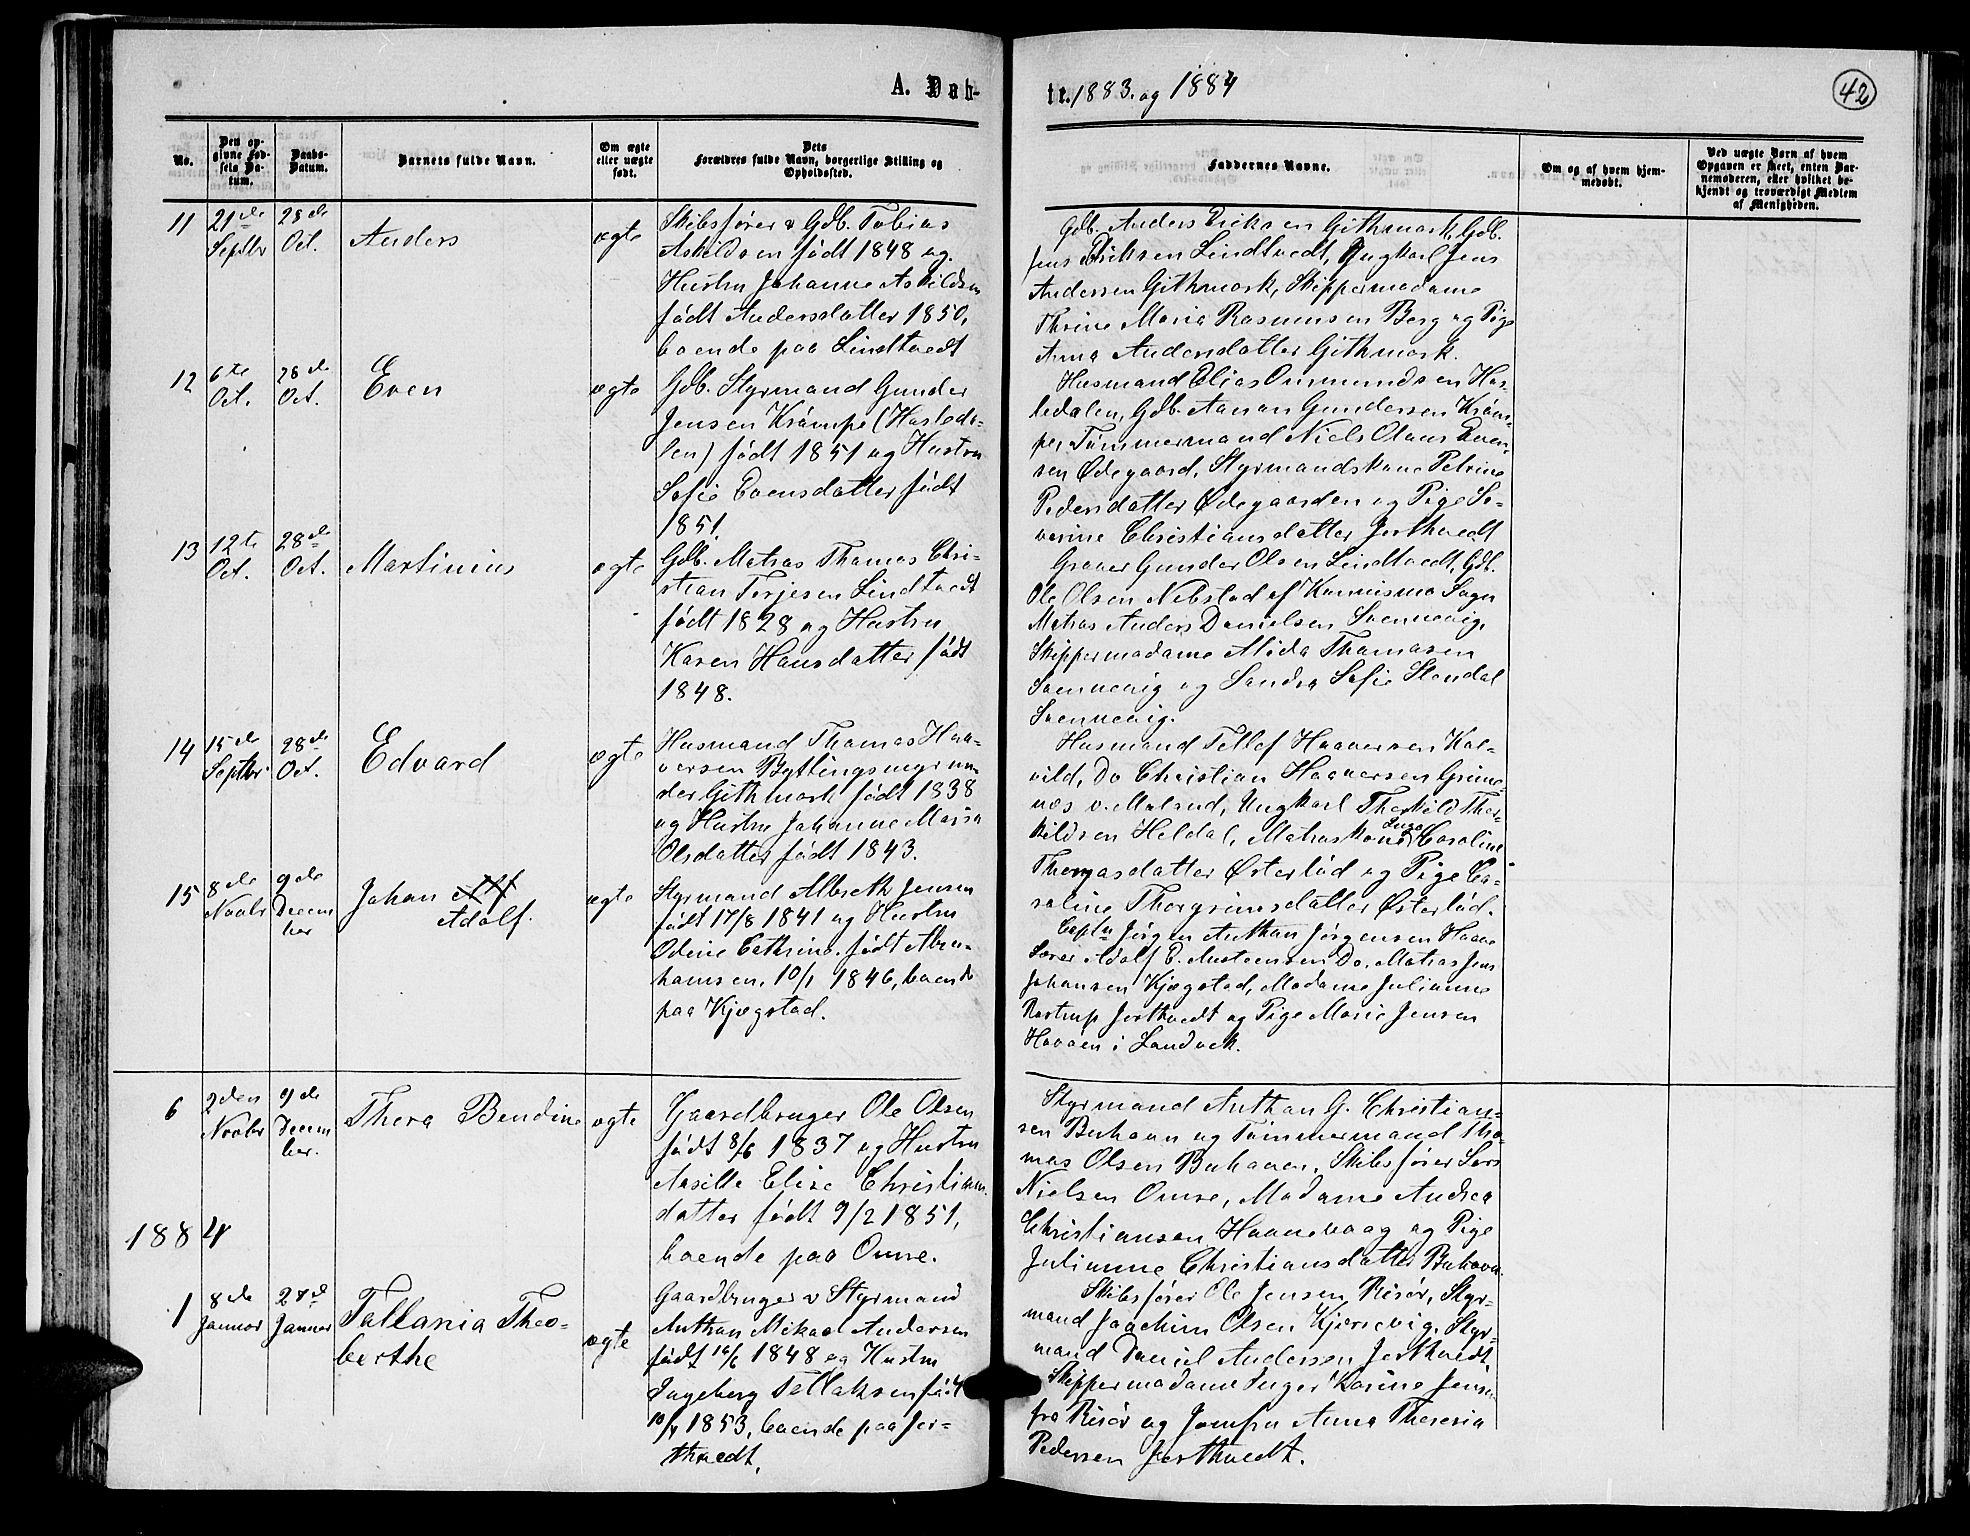 A. Døb-
te. 1883. og 1884
42
No.
Den op-
givne Fød-
sels Da-
tum.
Daabs-
Datum.
Barnets fulde Navn.
Om ægte
eller uægte
født.
Dets
Forældres fulde Navn, borgerlige Stilling og
Opholdssted.
Faddernes Navne.
Om og af hvem hjem-
medøbt.
Ved uægte Børn af hvem
Opgaven er skeet, enten Bar-
nemoderen, eller hvilket be-
kjendt og troværdigt Medlem
af Menigheden.
11
21de
Septbr
28de
Oct.
Anders
ægte
Skibsfører & Gdb. Tobias
Askildsen født 1848 og
Hustru Johanne Askildsen
født Andersdatter 1850,
boende paa Lindtvedt
Gdb. Anders Eriksen Githmark, Gdb.
Jens Eriksen Lindtvedt, Ungkarl Jens
Andersen Githmark, Skippermadame
Thrine Maria Rasmussen Berg og Pige
Anna Andersdatter Githmark.
12
6te
Oct.
28de
Oct.
Even
ægte
Gdb. Styrmand Gunder
Jensen Krømpe (Hasleda-
len) født 1851 og Hustru
Sofie Evensdatter født
1851.
Husmand Elias Ommundsen Has-
ledalen, Gdb. Aanon Gundersen Krøm-
pe, Tømmermand Niels Olaus Even-
sen Ødegaard, Styrmandskone Petrine
Pedersdatter Ødegaarden og Pige Se-
verine Christiansdatter Jortveit
13
12te
Oct.
28de
Oct.
Martinius
ægte
Gdb. Matros Thomas Chri-
stian Terjesen Lindtvedt
født 1828 og Hustru
Karen Hansdatter født
1848.
Graver Gunder Olsen Lindtvedt, Gdb.
Ole Olsen Nebstad af Sogn
Matros Anders Danielsen Svennevig,
Skippermadame Alida Thomasen
Svennevig og Sandra Sofie Stendal
Svennevig.
14
15de
Septbr.
28de
Oct.
Edvard
ægte
Husmand Thomas Haa-
versen Byttingsmyr un-
der Githmark født 1838
og Hustru Johanne Maria
Olsdatter født 1843.
Husmand Tellef Haaversen Kal-
vild, Do Christian Haaversen Grime-
næs v. Moland, Ungkarl Therkild Ther-
kildsen Heldal, Matroskone Inger Caroline
Thomasdatter Østerlod og Pige Ca-
roline Thorgrimsdatter Østerlod.
15
8de
Novbr
9de
Decem
ber
Johan Alf
Adolf.
ægte
Styrmand Albreth Jensen
født 17/8 1841 og Hustru
Odine Cathrine født Abra-
hamsen, 10/1 1846, boende
paa Kjægstad.
Captn Jørgen Anthon Jørgensen Haave
Lærer Adolf E. Austensen Do. Matros Jens
Johansen Kjøgstad, Madame Julianne
Rostrup Jorthvedt og Pige Marie Jensen
Haaven i Landvik.
6
2den
Novbr
9de
Decem
ber.
Thera Bendine
ægte
Gaardbruger Ole Olsen
født 8/6 1837 og Hustru
Aasille Elise Christians-
datter født 9/2 1851,
boende paa Omre.
Styrmand Anthon G. Christian-
sen Buhavn og Tømmermand Tho-
mas Olsen Buhaven, Skibsfører Lars
Nielsen Omre, Madame Andrea
Christiansen Haanevaag og Pige
Julianne Christiansdatter Buhavn.
1884
1
8de
Januar
27de
Januar
Tallania Theo-
berthe
ægte
Gaardbruger & Styrmand
Anthon Mikael Andersen
født 16/6 1848 og Hustru
Ingeborg Tellaksen født
10/4 1853, boende paa Jor-
thvedt.
Skibsfører Ole Jensen Risør, Styr-
mand Joachim Olsen Kjørrevig, Styr-
mand Daniel Andersen Jorthvedt,
Skippermadame Inger Karine Jensen
fra Risør og Jomfru Anna Theresia
Pedersen Jorthvedt.